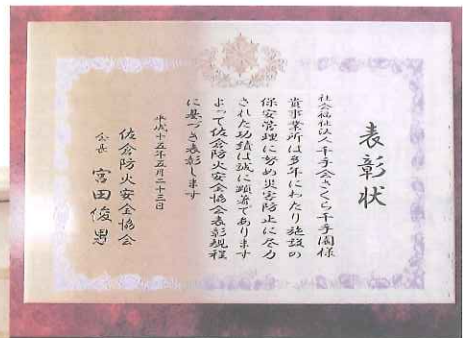 表彰状
社会福祉法人千手会さくら千手園様
貴事業所は多年にわたり施設の
保安管理に努め災害防止に尽力
された功績は誠に顕著であります
よって佐倉防火安全協会表彰規程
に基づき表彰します
平成十五年五月二十三日
佐倉防火安全協会
会長 宮田俊男